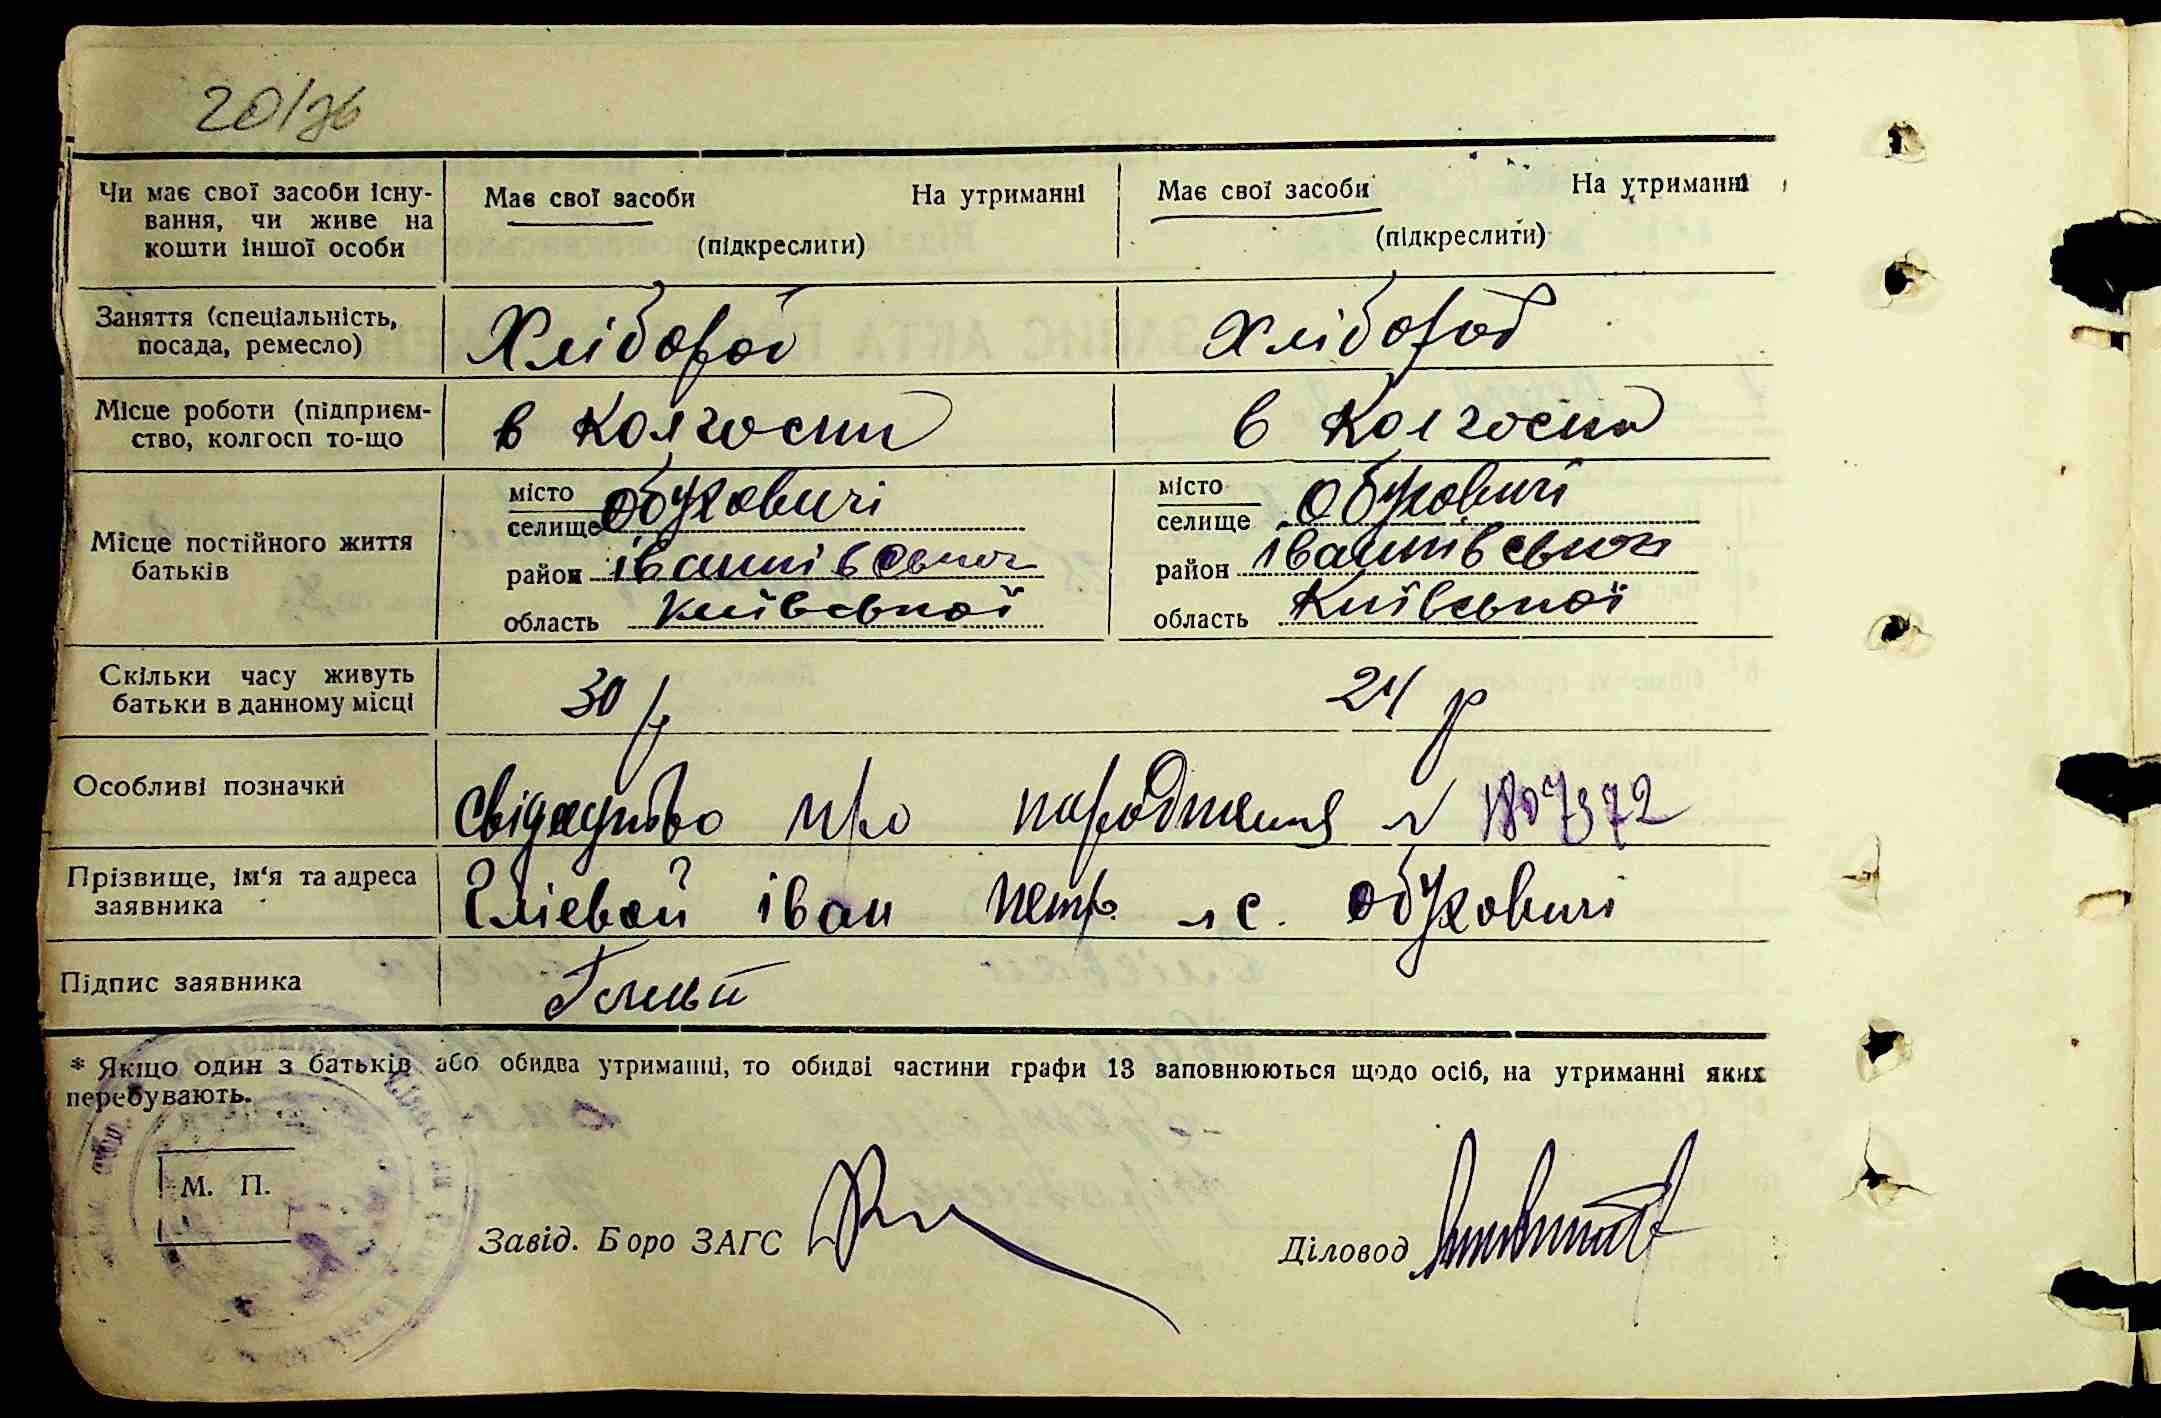 20/
Чи має свої засоби існу-
вання, чи живе на
кошти іншої особи
Має свої засоби На утриманні
(підкреслити)
Має свої засоби На утриманні
(підкреслити)
Заняття (спеціальність,
посада, ремесло)
Хлібороб
Хлібороб
Місце роботи (підприєм-
ство, колгосп то-що
в колгоспі
в колгоспі
Місце постійного життя
батьків
місто
селище Обуховичі
район іванківської
область Київської
місто
селище Обуховичі
район іванківської
область Київської
Скільки часу живуть
батьки в данному місці
30 р
24 р
Особливі позначки
Свідоцтво про народження № 1807372
Прізвище, ім'я та адреса
заявника
іван петр. с. Обуховичі
Підпис заявника
* Якщо один з батьків або обидва утриманці, то обидві частини графи 13 заповнюються щодо осіб, на утриманні яких
перебувають.
М. П.
Завід. Боро ЗАГС
Діловод